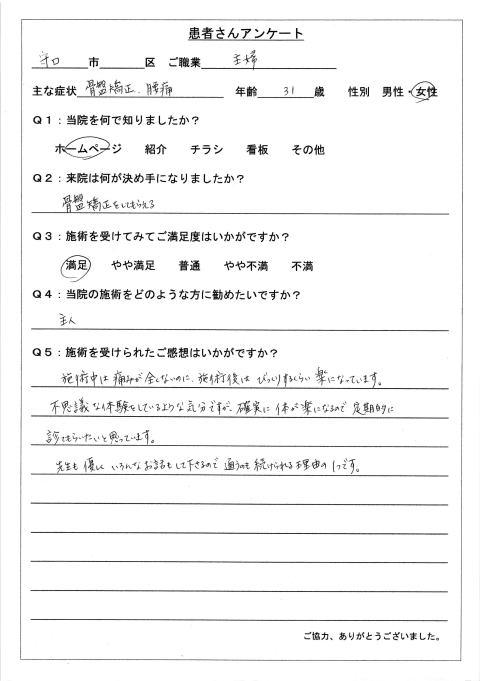 患者さんアンケート
守口 市 区 ご職業 主婦
主な症状 骨盤矯正、腰痛 年齢 31 歳 性別 男性・女性
Q1：当院を何で知りましたか？
ホームページ 紹介 チラシ 看板 その他
Q2：来院は何が決め手になりましたか？
骨盤矯正をしてもらえる
Q3：施術を受けてみてご満足度はいかがですか？
満足 やや満足 普通 やや不満 不満
Q4：当院の施術をどのような方に勧めたいですか？
主人
Q5：施術を受けられたご感想はいかがですか？
施術中は痛みが全くないのに、施術後はびっくりするくらい楽になっています。
不思議な体験をしているような気分ですが、確実に体が楽になるので定期的に
診てもらいたいと思っています。
先生も優しく いろんなお話もして下さるので 通うのも続けられる理由の1つです。
ご協力、ありがとうございました。